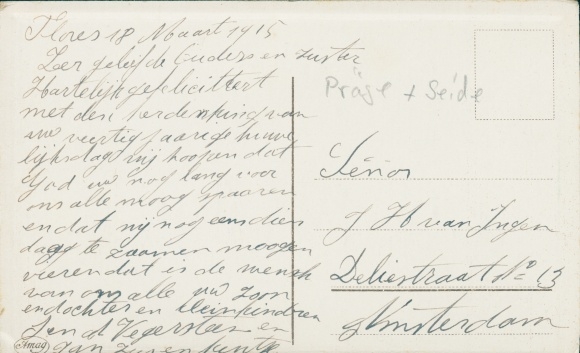 Flores 18 Maart 1915
Zeer geliefde Ouders en zuster
Hartelijk gefeliciteert
met den herdenking van
uw veertig jaarige huwe
lijksdag wij hoopen dat
God uw nog lang voor
ons alle moog spaaren
en dat wij nog eens dien
dagg te zaamen moogen
vieren dat is de wensch
van ons alle uw zoon
en dochter en kleinkindren
en
Amag
Präge + Seide
Señor
J H van Ingen
Deliestraat No 13
Amsterdam